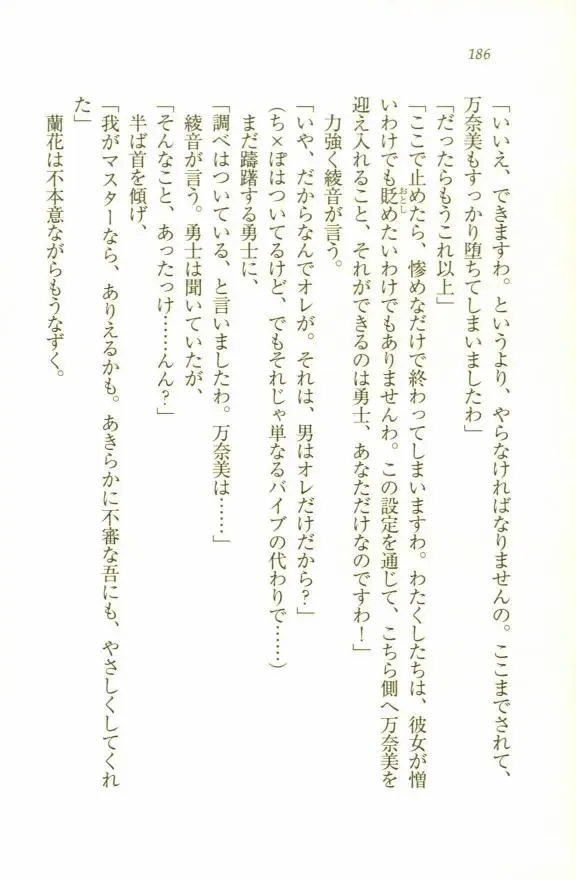 186
「いいえ、できますわ。というより、やらなければなりませんの。ここまでされて、
万奈美もすっかり堕ちてしまいましたわ」
「だったらもうこれ以上」
「ここで止めたら、惨めなだけで終わってしまいますわ。わたくしたちは、彼女が憎
いわけでも貶めたいわけでもありませんわ。この設定を通じて、こちら側へ万奈美を
おとし
迎え入れること、それができるのは勇士、あなただけなのですわ！」
力強く綾音が言う。
「いや、だからなんでオレが。それは、男はオレだけだから？」
(ち×ぽはついてるけど、でもそれじゃ単なるバイブの代わりで……)
まだ躊躇する勇士に、
「調べはついている、と言いましたわ。万奈美は……」
綾音が言う。勇士は聞いていたが、
「そんなこと、あったっけ……んん？」
半ば首を傾げ、
「我がマスターなら、ありえるかも。あきらかに不審な吾にも、やさしくしてくれ
た」
蘭花は不本意ながらもうなずく。